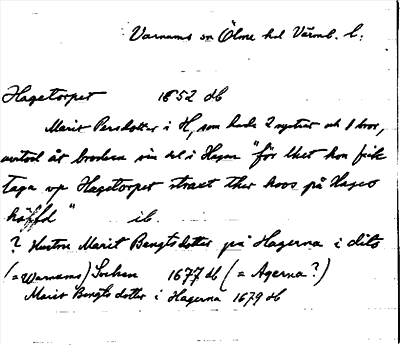 Varnums sn Ölme hd Värml. l.
Hagetorpet 1652 db
Marit Persdotter i H, som hade 2 systrar och 1 bror,
avtod åt brodern sin del i Hagen "för thet hon fick
taga vp Hagetorpet straxt ther hoos på Hages
häffd" ib.
? Hustru Marit Bengtsdotter på Hagerna i dito
(= Warnums) Sochen 1677 db (= Agerna?)
Marit Bengts dotter i Hagerna 1679 db